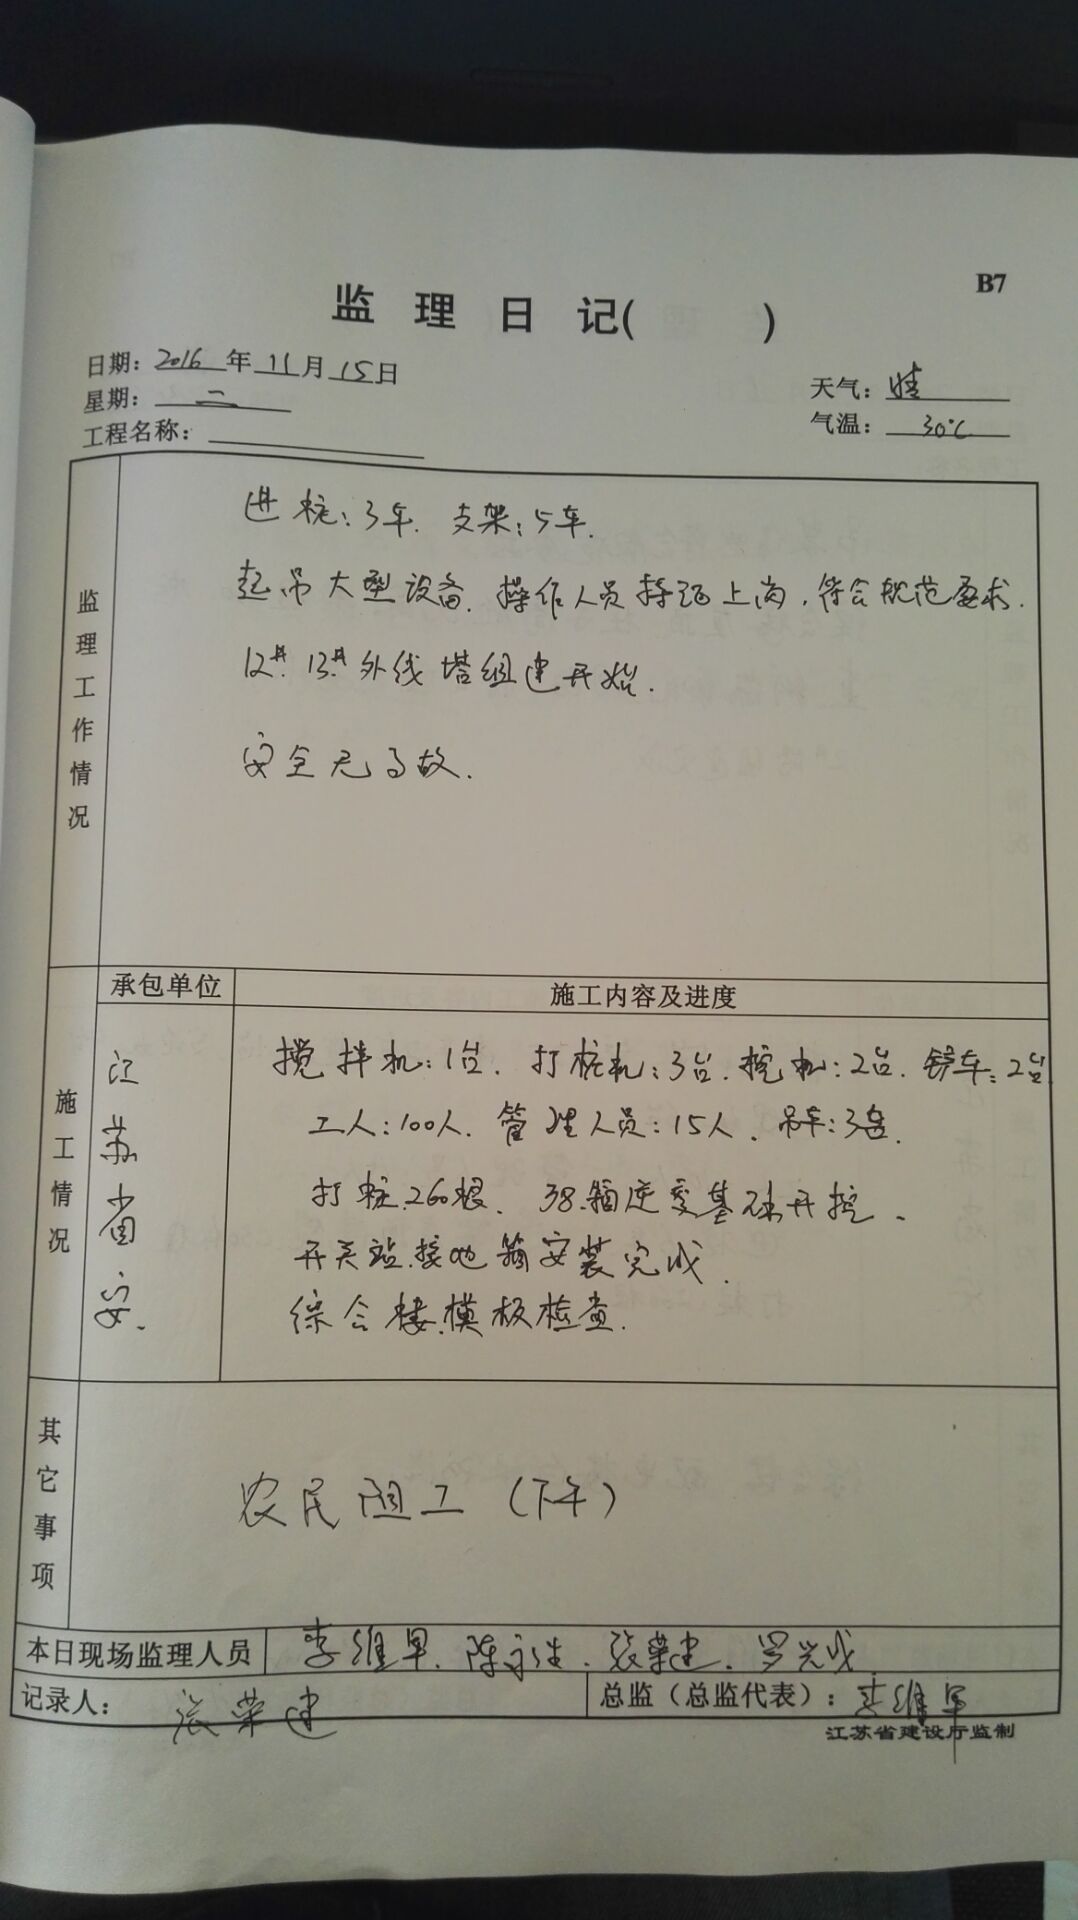 B7
监理日记( )
日期：2016年11月15日
星期：二
天气：晴
工程名称：
气温：30℃
监理工作情况
进桩：3车. 支架：5车.
起吊大型设备. 操作人员持证上岗，符合规范要求.
12#. 13#外线塔组建开始.
安全无事故.
施工情况
承包单位
施工内容及进度
江苏省安.
搅拌机：1台. 打桩机：3台. 挖机：2台. 铲车：2台
工人：100人. 管理人员：15人. 吊车：3台.
打桩.260根. 38.箱逆变基础开挖.
开关站.接地箱安装完成.
综合楼.模板检查.
其它事项
农民阻工（下午）
本日现场监理人员 李维军. 陈永生. 张荣建. 罗兴成
记录人：张荣建
总监（总监代表）：李维军
江苏省建设厅监制